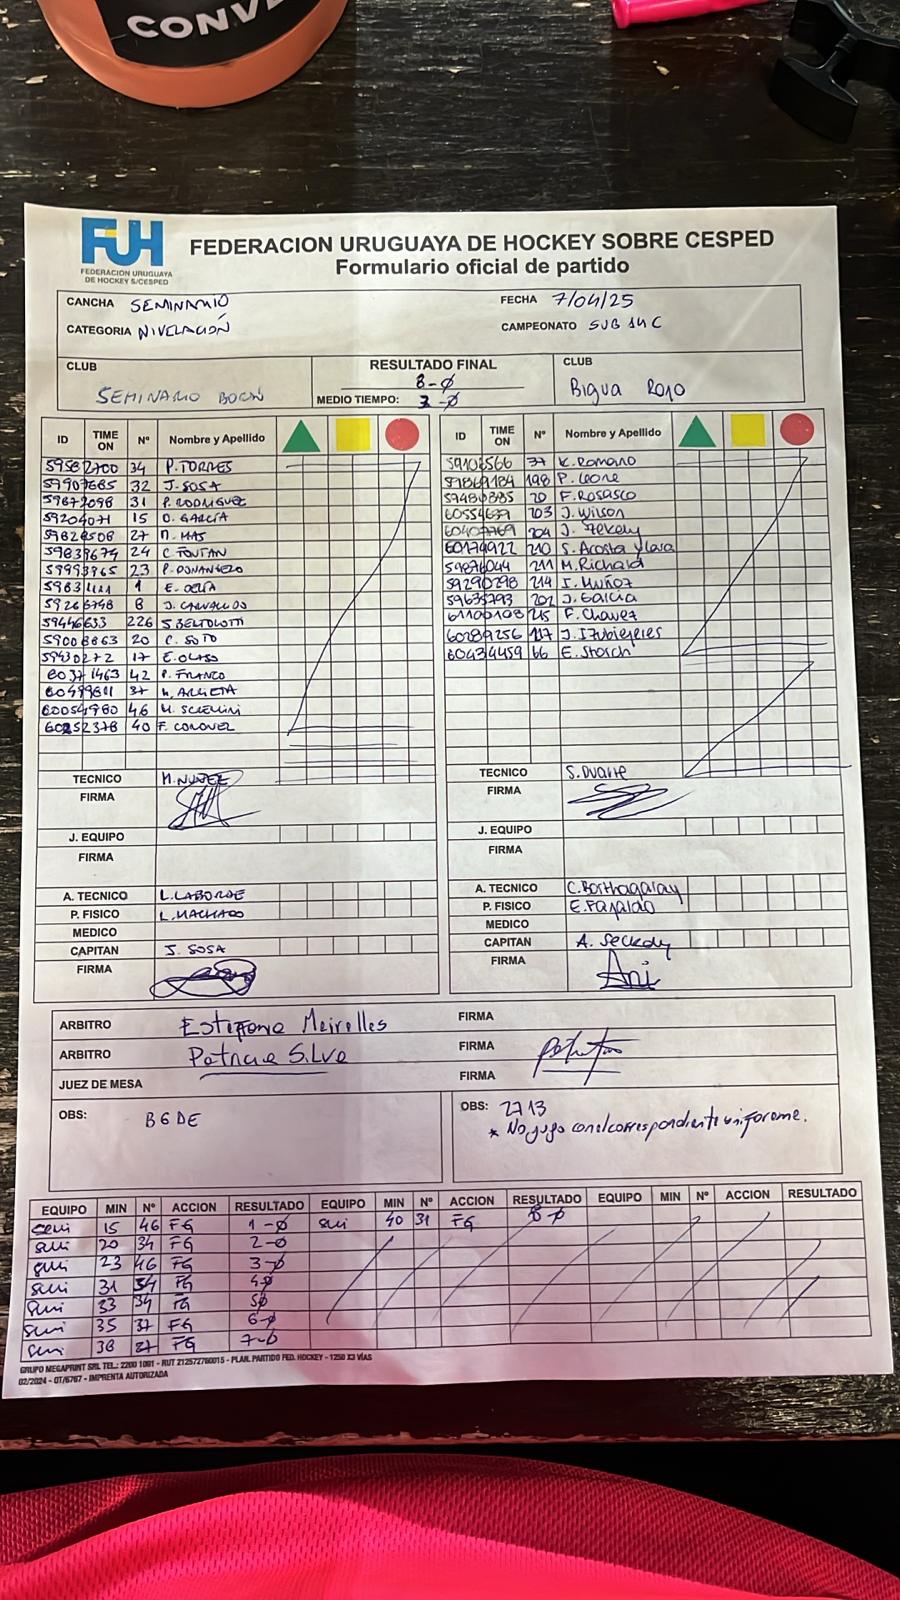 CONVE
FUH
FEDERACION URUGUAYA
DE HOCKEY S/CESPED
FEDERACION URUGUAYA DE HOCKEY SOBRE CESPED
Formulario oficial de partido
CANCHA SEMINARIO FECHA 7/04/25
CATEGORIA NIVELACIÓN CAMPEONATO SUB 14 C
CLUB RESULTADO FINAL CLUB
SEMINARIO 8-0 Bigua Rojo
MEDIO TIEMPO: 3-0
ID TIME ON Nº Nombre y Apellido ID TIME ON Nº Nombre y Apellido
59582700 34 P. TORRES 37 K. Romano
59907685 32 J. SOSA 198 P. Leone
59872098 31 P. RODRIGUEZ 20 F. Rosasco
59204071 15 O. GARCÍA 203 J. Wilson
59828508 27 M. MAS 204
59839674 24 C. FONTAN 60179922 210 S. Acosta y Lara
59993965 23 59876044 211 M. Richard
1 E. 59290298 214 I. MUÑOZ
59266748 8 J. CARVALLIDO 59635793 202 J. García
59446633 226 S. BERTOLOTTI 61100108 215 F. Chavez
59008863 20 C. SOTO 60289256 117
17 E. OLASO 60434459 66 E. Storch
60371463 42 P. FRANCO
60499801 37 M. ARRIETA
60054980 46
60252378 40 F. CORONEL
TECNICO M. NUÑEZ TECNICO S. Duarte
FIRMA FIRMA
J. EQUIPO J. EQUIPO
FIRMA FIRMA
A. TECNICO L. LABORDE A. TECNICO C. Borthagaray
P. FISICO L. MACHADO P. FISICO E. Fajardo
MEDICO MEDICO
CAPITAN J. SOSA CAPITAN A.
FIRMA FIRMA Ani
ARBITRO Estefania Meirelles FIRMA
ARBITRO Patricia Silva FIRMA
JUEZ DE MESA FIRMA
OBS: B6DE OBS: 2713
* No jugo con el correspondiente uniforme.
EQUIPO MIN Nº ACCION RESULTADO EQUIPO MIN Nº ACCION RESULTADO EQUIPO MIN Nº ACCION RESULTADO
semi 15 46 FG 1-0 semi 40 31 FG 8-0
semi 20 34 FG 2-0
semi 23 46 FG 3-0
semi 31 34 FG 4-0
semi 33 34 FG 5-0
semi 35 37 FG 6-0
semi 38 27 FG 7-0
GRUPO MEGAPRINT SRL TEL.: 2200 1091 - RUT 212572760015 - PLAN. PARTIDO FED. HOCKEY - 1250 X3 VÍAS
02/2024 - OT/6767 - IMPRENTA AUTORIZADA